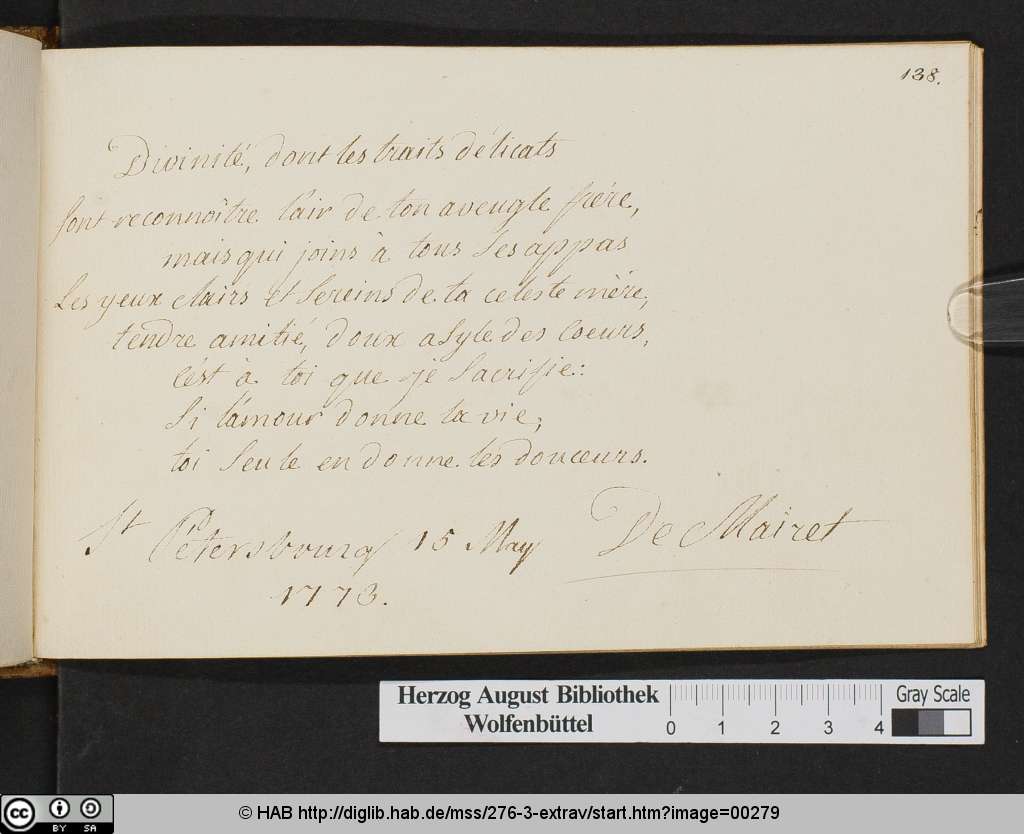 138.
Divinité, dont les traits délicats
font reconnoître l'air de ton aveugle frére,
mais qui joins à tous ses appas
Les yeux clairs et sereins de ta celeste mère,
tendre amitié, doux asyle des coeurs,
c'ést à toi que je sacrifie:
Si l'amour donne la vie,
toi seule en donne les douceurs.
St Pétersbourg 15 May
1773.
De Mairet
Herzog August Bibliothek
Wolfenbüttel
0 1 2 3 4
Gray Scale
cc BY SA
© HAB http://diglib.hab.de/mss/276-3-extrav/start.htm?image=00279